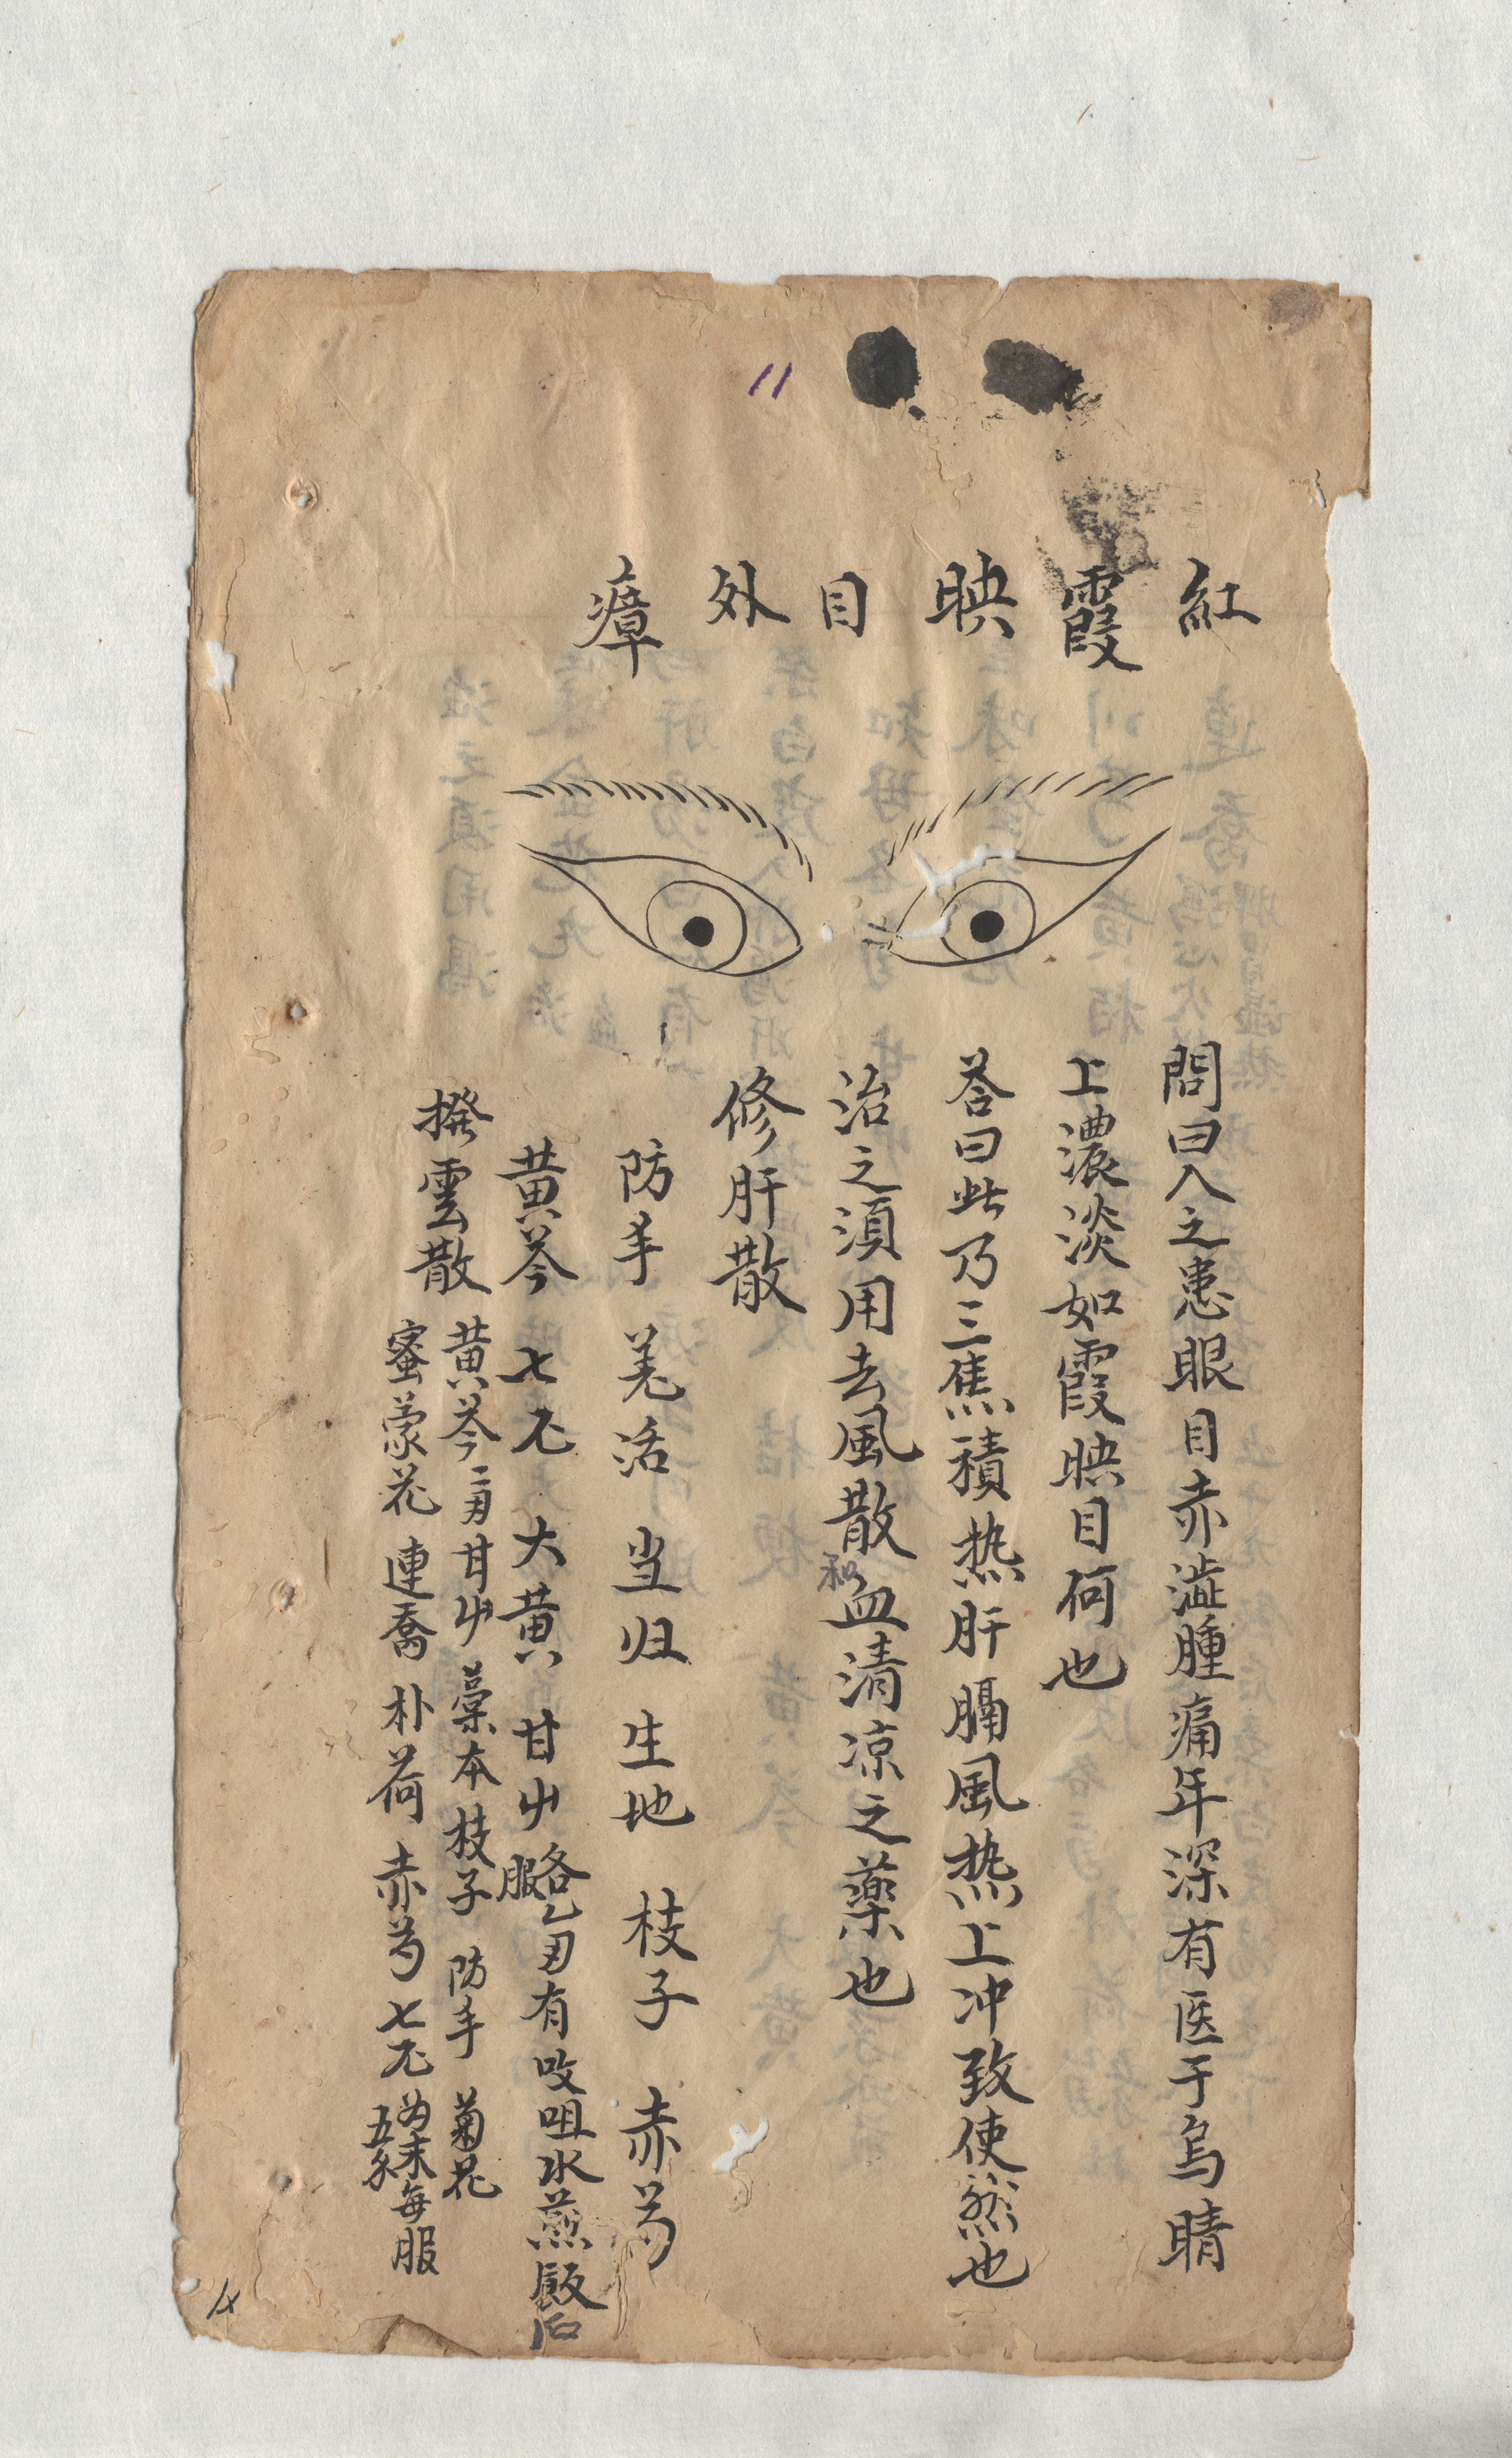 11
紅霞映目外瘴
問曰人之患眼目赤澁腫痛年深有医于烏睛
上濃淡如霞映目何也
荅曰此乃三焦積热肝膈風热上冲致使然也
治之須用去風散和血清凉之藥也
修肝散
防手 羌活 当归 生地 枝子 赤芍
黄芩 七尼 大黄 甘屮 各乙 有㕮咀水煎飯后
服
撥雲散
黄芩 甘屮 藁本 枝子 防手 菊花
蜜蒙花 連喬 朴荷 赤芍 七尼 为末每服
五分
4